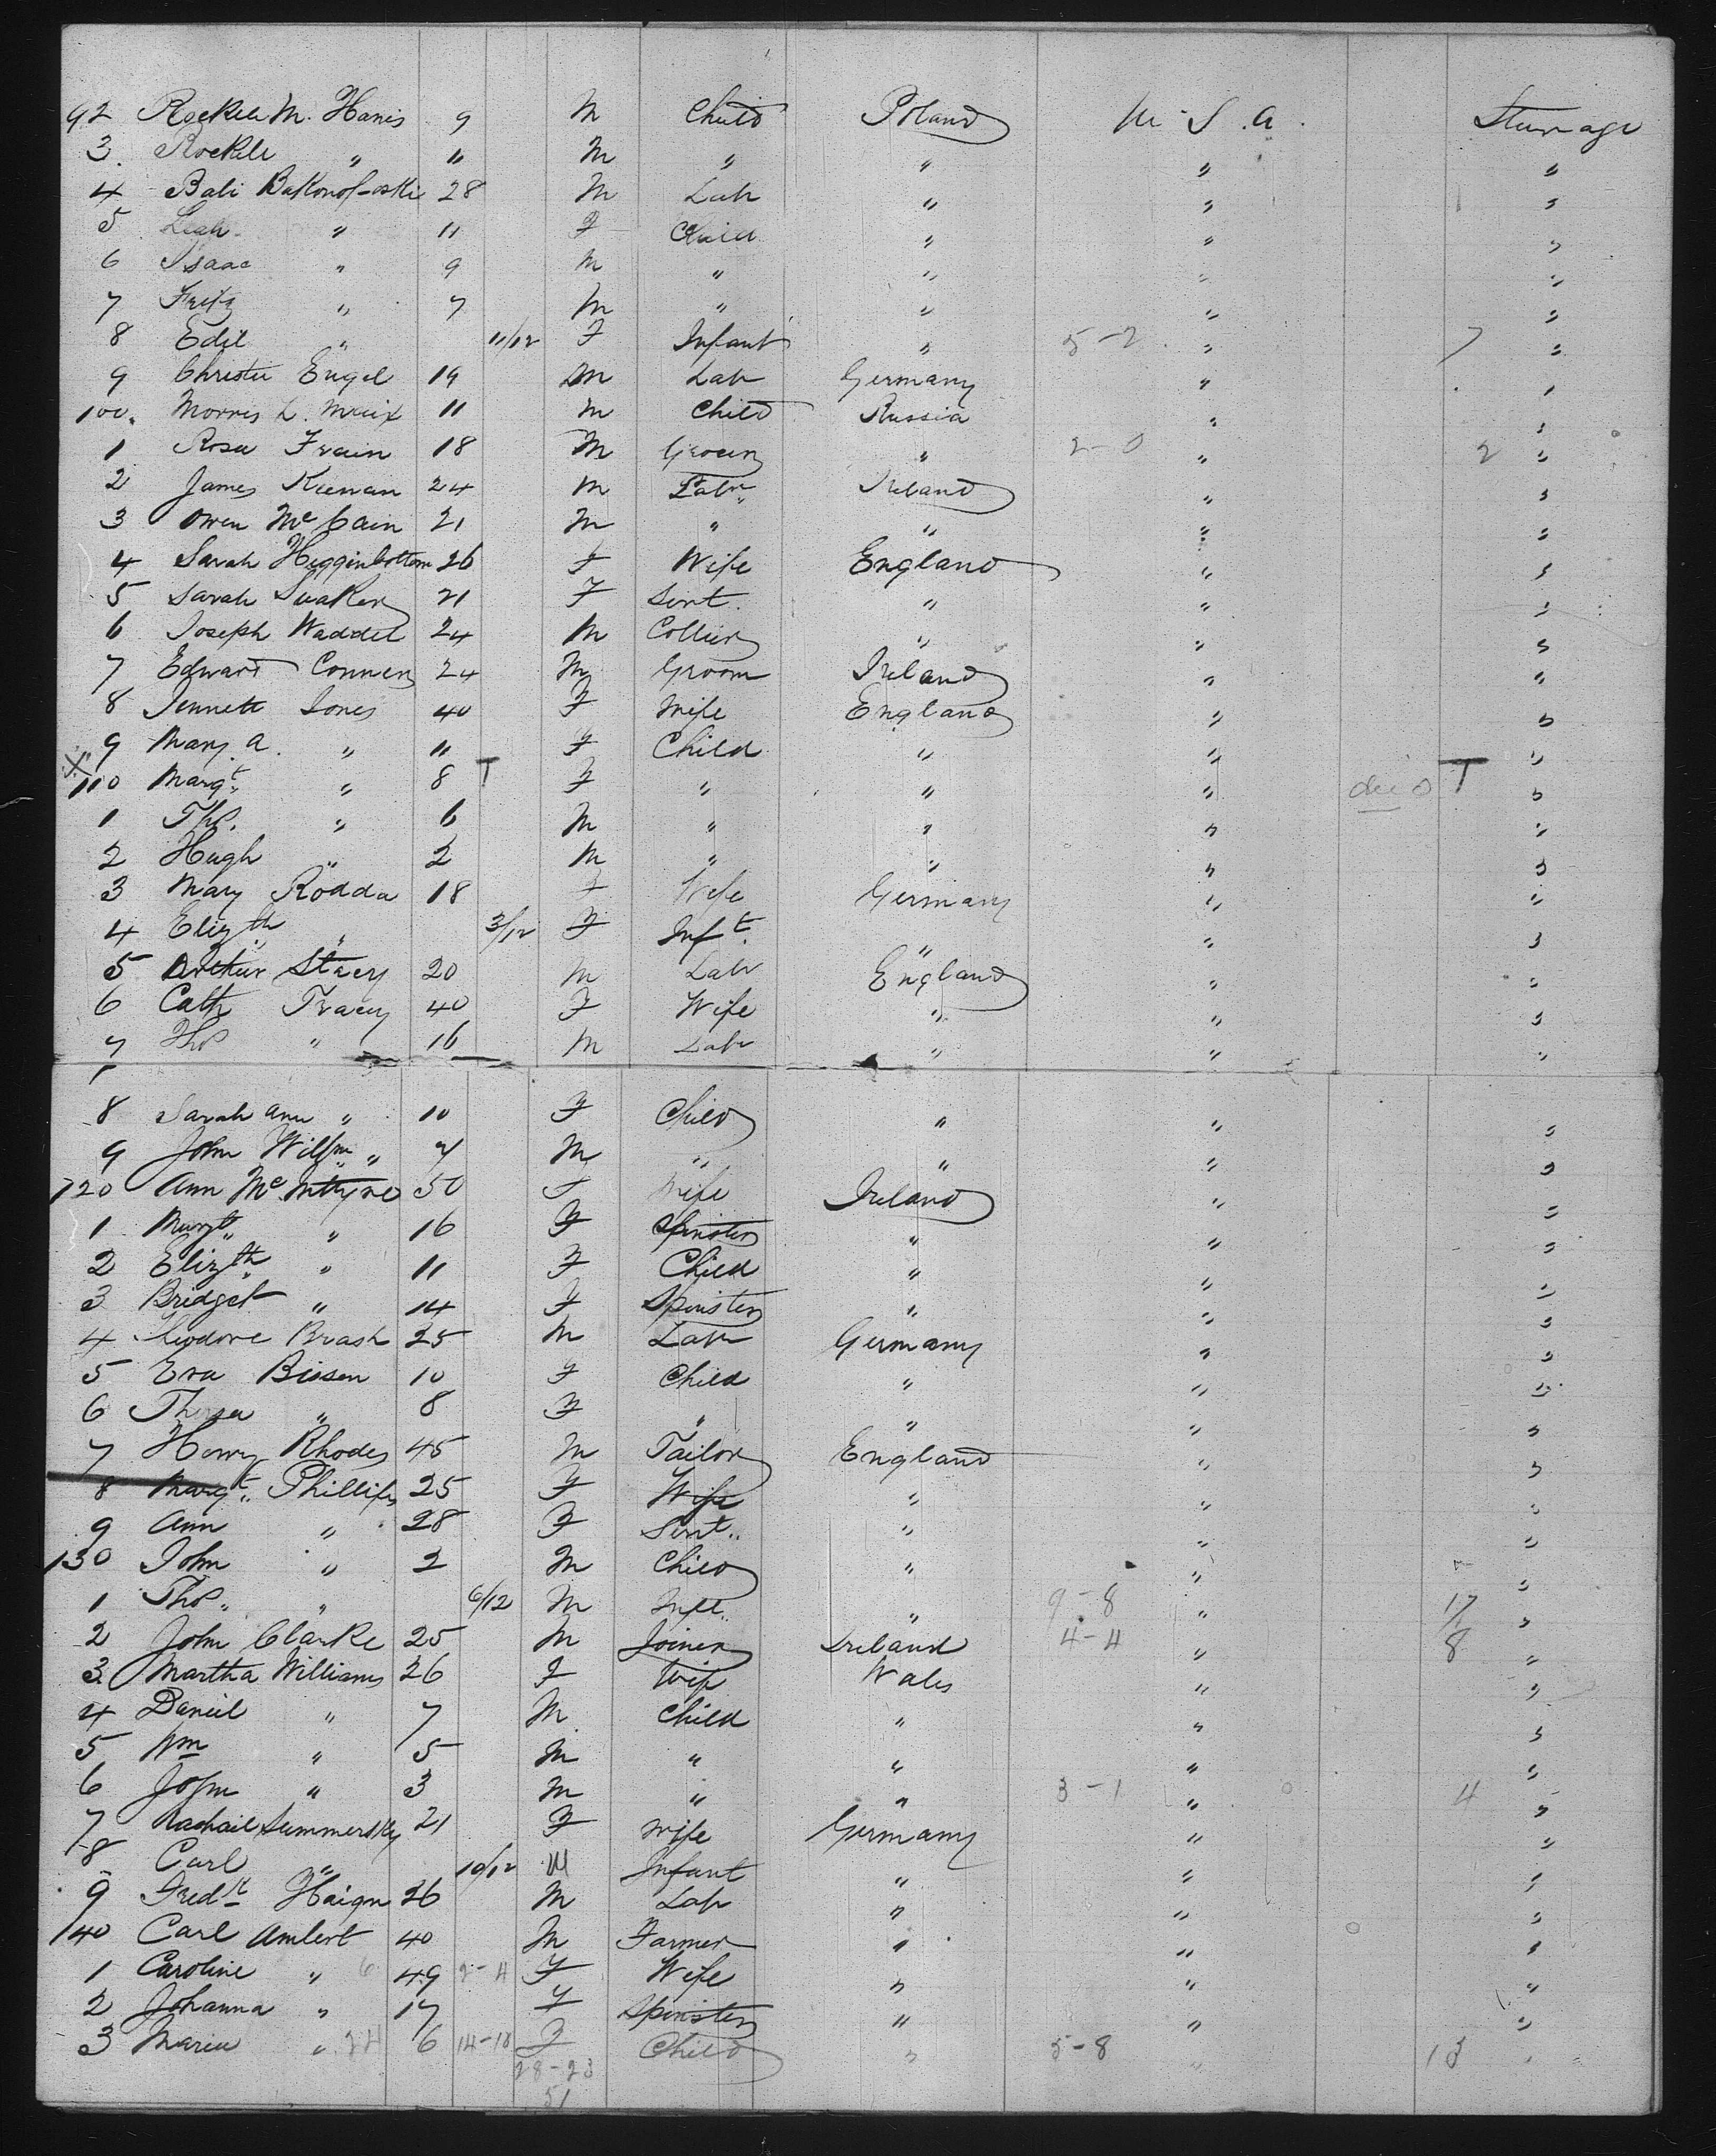 92 Rockele M. Hanis 9 M Child Poland U. S. A. Steerage
3. Rockele " 11 M " " " "
4 Bali Bakonof-oski 28 M Labr " " "
5 Leah " 11 F Child " " "
6 Isaac " 9 M " " " "
7 Fritz " 7 M " " " "
8 Edil " 11/12 F Infant " 5-2 " 7 "
9 Christie Engel 19 M Labr Germany " "
100. Morris L. 11 M Child Russia " "
1 Rosa Frain 18 M Grocer " 2-0 " 2 "
2 James Kiernan 24 M Labr Ireland " "
3 Owen McCain 21 M " " " "
4 Sarah Higginbottom 26 F Wife England " "
5 Sarah Suaker 21 F Servt. " " "
6 Joseph Waddel 24 M Collier " " "
7 Edward Conners 24 M Groom Ireland " "
8 Jennett Jones 40 F Wife England " "
9 Mary A. " 11 F Child " " "
X 110 Margt. " 8 T F " " " died T "
1 Thos. " 6 M " " " "
2 Hugh " 2 M " " " "
3 Mary Rodda 18 F Wife Germany " "
4 Elizth " 3/12 F Inft. " " "
5 Arthur Stacey 20 M Labr England " "
6 Cath Tracey 40 F Wife " " "
7 Thos " 16 M Labr " " "
8 Sarah Ann " 10 F Child " " "
9 John Willm " 7 M " " " "
120 Ann McIntyre 50 F Wife Ireland " "
1 Margt " 16 F Spinster " " "
2 Elizth " 11 F Child " " "
3 Bridget " 14 F Spinster " " "
4 Theodore Brash 25 M Labr Germany " "
5 Eva Bissen 10 F Child " " "
6 Thresa " 8 F " " " "
7 Henry Rhodes 45 M Tailor England " "
8 Margt. Phillips 25 F Wife " " "
9 Ann " 28 F Servt.. " " "
130 John " 2 M Child " " "
1 Thos. " 6/12 M Inft.. " 9-8 " 17 "
2 John Clarke 25 M Joiner Ireland 4-4 " 8 "
3. Martha Williams 26 F Wife Wales " "
4 Daniel " 7 M Child " " "
5 Wm " 5 M " " " "
6 John " 3 M " " 3-1 " 4 "
7 Rachail Summersky 21 F Wife Germany " "
8 Carl " 10/12 M Infant " " "
9 Fredk Haign 26 M Labr " " "
140 Carl Amlert 40 M Farmer " " "
1 Caroline " 6 49 2-4 F Wife " " "
2 Johanna " 17 F Spinster " " "
3 Maria " 24 6 14-18 F Child " 5-8 " 13 "
28-23
51